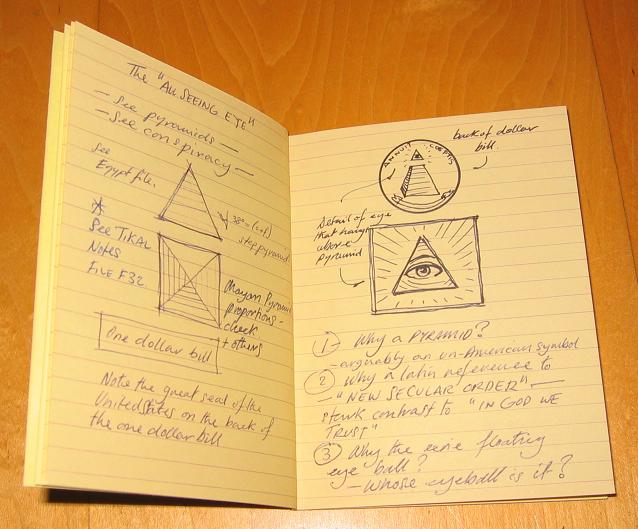 The "ALL SEEING EYE"
- See pyramids -
- See conspiracy -
See
Egypt file.
38°=
step pyramid
See TIKAL
Notes
FILE F32
Mayan Pyramid
proportions -
check
+ others
One dollar bill
Note the great seal of the
United States on the back of
the one dollar bill
back of dollar
bill
ANNUIT COEPTIS
Detail of eye
that hangs
above
pyramid
1 Why a PYRAMID?
- arguably an un-American symbol
2 Why a latin reference to
- "NEW SECULAR ORDER" -
stark contrast to "IN GOD WE
TRUST"
3 Why the eerie floating
eye ball?
- Whose eyeball is it?